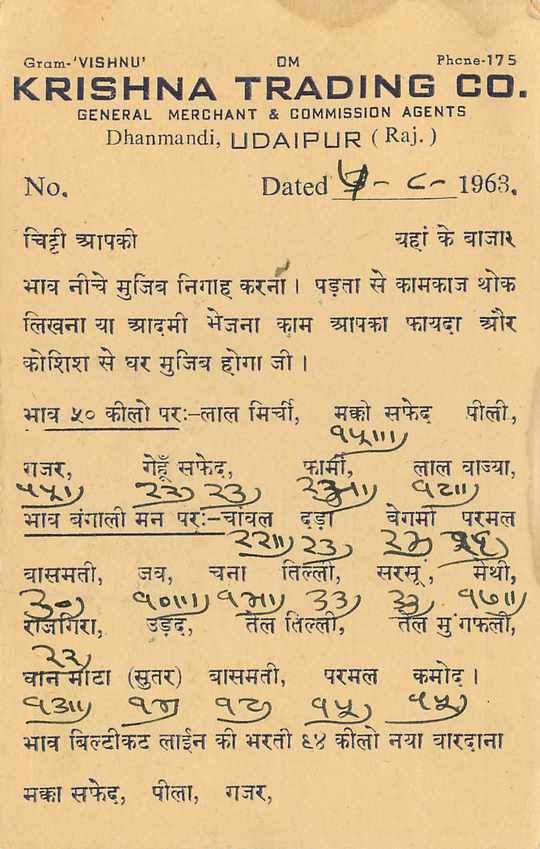 Gram-'VISHNU' OM Phone-175
KRISHNA TRADING CO.
GENERAL MERCHANT & COMMISSION AGENTS
Dhanmandi, UDAIPUR ( Raj. )
No. Dated ५-८- 1963.
चिट्टी आपकी यहां के बाजार
भाव नीचे मुजिब निगाह करना। पड़ता से कामकाज थोक
लिखना या आदमी भेजना काम आपका फायदा और
कोशिश से घर मुजिब होगा जी।
भाव ५० कीलो परः-लाल मिर्ची, मक्की सफेद पीली,
१५॥।)
गजर, गेहूँ सफेद, फार्मी, लाल वाज्या,
२३) २३) १८॥)
भाव बंगाली मन परः-चांवल दड़ा बेगमी परमल
२२॥) २३)
बासमती, जव, चना तिल्ली, सरसू, मेथी,
३०) १०॥।) ३३) १७॥)
राजगिरा, उड़द, तेल तिल्ली, तेल मुंगफली,
२२)
धान मोटा (सुतर) बासमती, परमल कमोद।
१५) १५)
भाव बिल्टीकट लाईन की भरती ६४ कीलो नया बारदाना
मक्का सफेद, पीला, गजर,